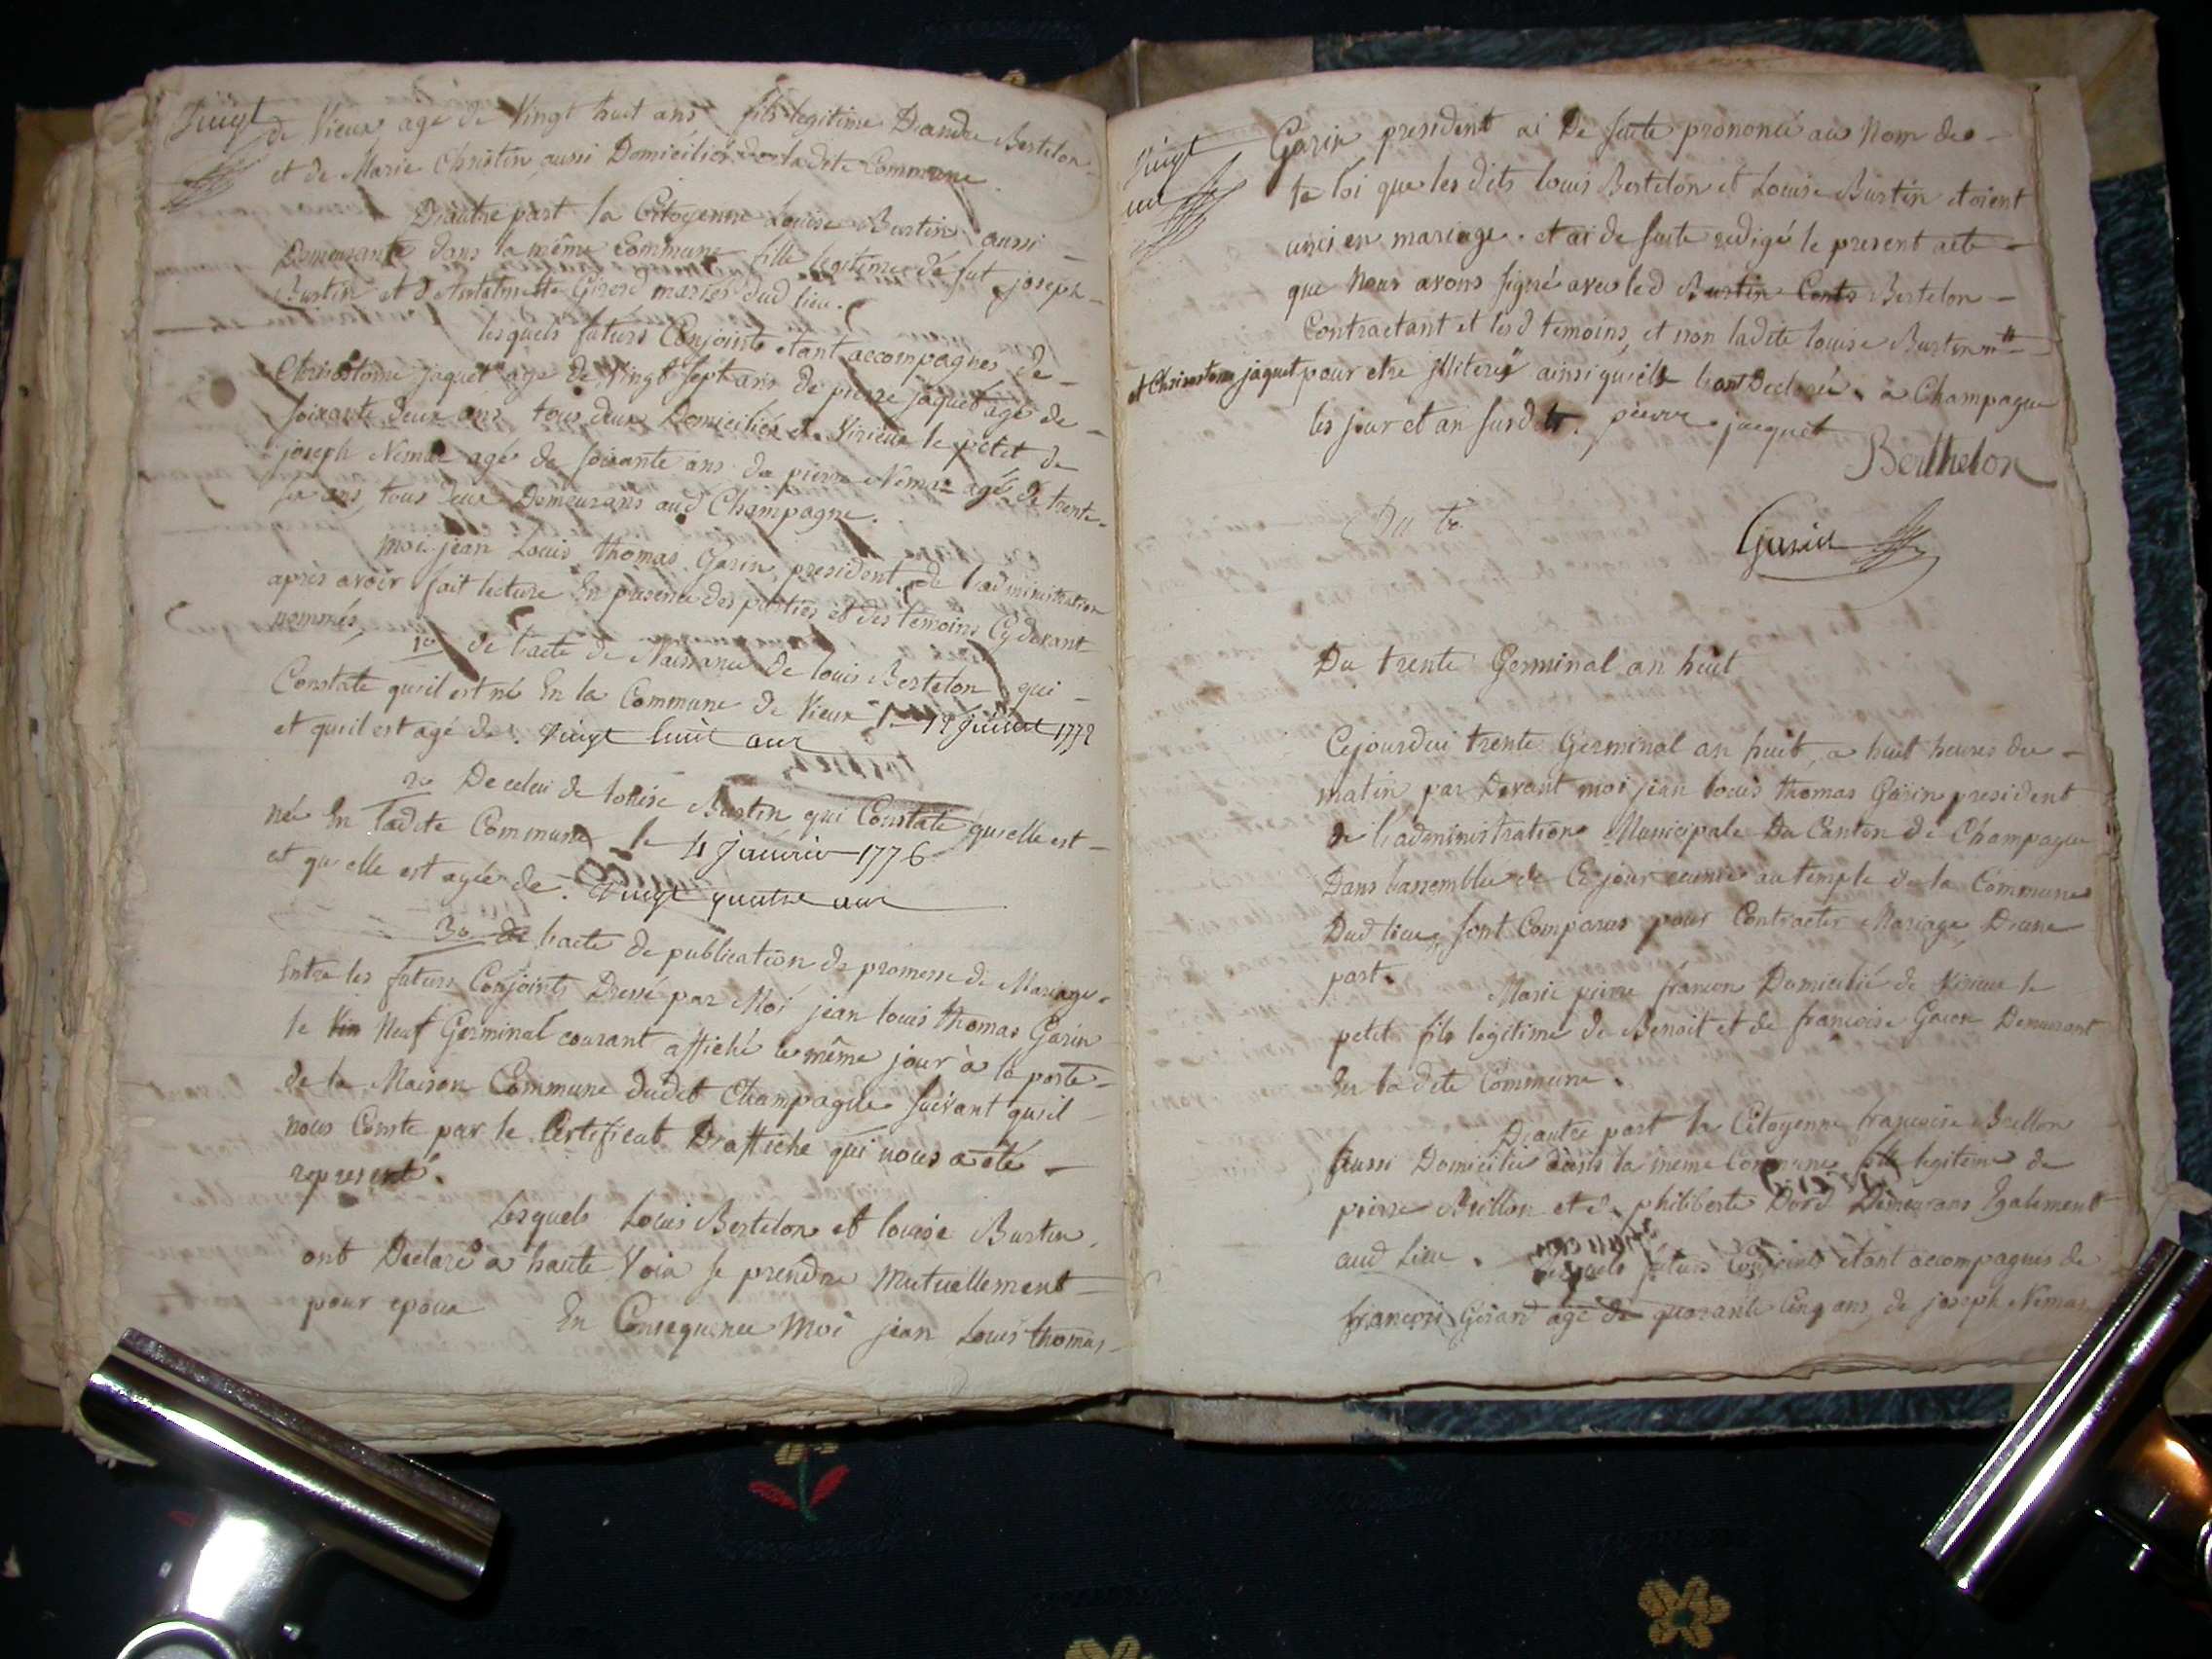 Vingt
de Vieux agé de Vingt huit ans fils legitime D'andre Bertelon
et de Marie Christin aussi Domiciliés dans ladite Commune
D'autre part la Citoyenne Louise Burtin aussi
Demeurante dans la même Commune fille legitime de fut joseph
Burtin et d'Antoinette Girerd mariés dud lieu.
lesquels futurs Conjoints etant accompagnés de
Chrisostome jaquet agé de Vingt sept ans de pierre jaquet agé de
soixante deux ans tous deux Domiciliés de Virieux le petit de
joseph Nemoz agé de soixante ans de pierre Nemoz agé de trente
six ans, tous deux Demeurans aud Champagne.
moi jean Louis thomas Garin president de l'administration
après avoir fait lecture En presence des parties et des temoins Cy devant
nommés,
1o de l'acte de Naissance de louis Bertelon qui
Constate qu'il est né En la Commune de Vieux le 12 juillet 1772
et qu'il est agé de. Vingt huit ans
2o De celui de louise Burtin qui Constate qu'elle est
né En ladite Commune le 4 janvier 1776
et qu'elle est agée de. Vingt quatre ans
3o de l'acte de publication de promesse de Mariage
Entre les futurs Conjoints Dressé par Moi jean louis thomas Garin
le Vin Neuf Germinal courant affiché le même jour à la porte
de la Maison Commune dudit Champagne suivant qu'il
nous Conste par le Certificat D'affiche qui nous a été
representé.
Lesquels Louis Bertelon et louise Burtin
ont Declaré a haute Voix se prendre Mutuellement
pour epoux En Consequence Moi jean Louis thomas
Vingt
un
Garin president ai De suite prononcé au Nom de
la loi que les dits louis Bertelon et Louise Burtin etoient
unis en mariage. et ai de suite redigé le present acte
que Nous avons signé avec led Burtin Conts Bertelon
Contractant et lesd temoins, et non ladite louise Burtin
et Chrisostome jaquet pour etre jlliterés ainsi qu'ils l'ont Declaré. a Champagne
les jour et an susd. pierre jacquet
Berthelon
Du tr
Garin
Du trente Germinal an huit
Cejourdui trente Germinal an huit, a huit heures du
matin par Devant moi jean louis thomas Garin president
de l'administration Municipale Du Canton de Champagne
Dans l'assemblée de Ce jour reunie au temple de la Commune
Dud lieu, sont Comparus pour Contracter Mariage, D'une
part.
Marie pierre françon Domicilié de Virieux le
petit fils legitime de Benoit et de francoise Demeurant
En ladite Commune.
D'autre part la Citoyenne francoise Brillon
aussi Domiciliée dans la meme Commune fille legitime de
pierre Brillon et de philiberte Demeurans Egalement
aud Lieu. Lesquels futurs Conjoints etant accompagnés de
françois Girard agé de quarante Cinq ans, de joseph Nemoz